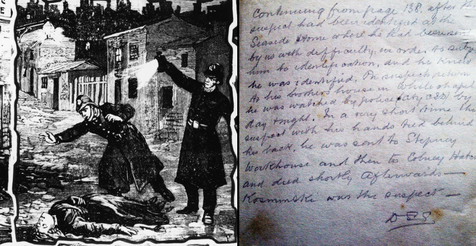 Continuing from page 138, after the
suspect had been identified at the
Seaside Home where he had been sent
by us with difficulty, in order to subject
him to identification, and he knew
he was identified. On suspect's return
to his brother's house in Whitechapel
he was watched by police (City CID) by
day & night. In a very short time the
suspect with his hands tied behind
his back, he was sent to Stepney
Workhouse and then to Colney Hatch
and died shortly afterwards —
Kosminski was the suspect —
DSS